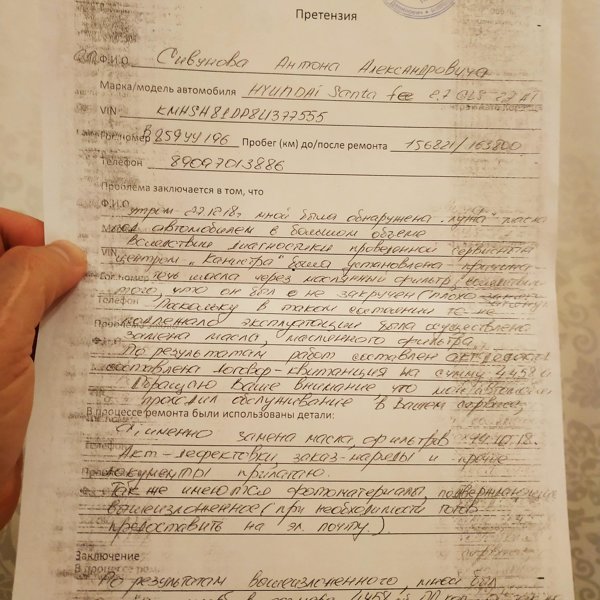 Претензия
Ф.И.О. Сивунова Антона Александровича
Марка/модель автомобиля HYUNDAI Santa fee 2,7
VIN KMHSH81DP8U377555
Гос.номер В859УУ196 Пробег (км) до/после ремонта 156821/163800
Телефон 89097013886
Проблема заключается в том, что
Ф.И.О
утром 27.12.18г мной была обнаружена "лужа" масла
под автомобилем в большом объеме
Вследствии диагностики проведенной сервисным
VIN
центром "Канистра" была установлена причина
Гос.номер
течь масла через масляный фильтр,
того, что он был не закручен (плохо
Телефон
Поскольку в таком состоянии то не
подлежало эксплуатации была осуществлена
замена масла, масленного фильтра.
По результатам работ составлен акт
составлена договор-квитанция на сумму 4458
Обращаю Ваше внимание что мой автомобиль
проходил обслуживание в Вашем сервисе
В процессе ремонта были использованы детали:
А, именно замена масла, фильтров
Акт-дефектовки, заказ-наряды и прочие
документы прилагаю.
Так же имеются фотоматериалы, подтверждающие
вышеизложенное (при необходимости готов
предоставить на эл. почту.)
Заключение
В процессе рем
По результатам вышеизложенного, мной был